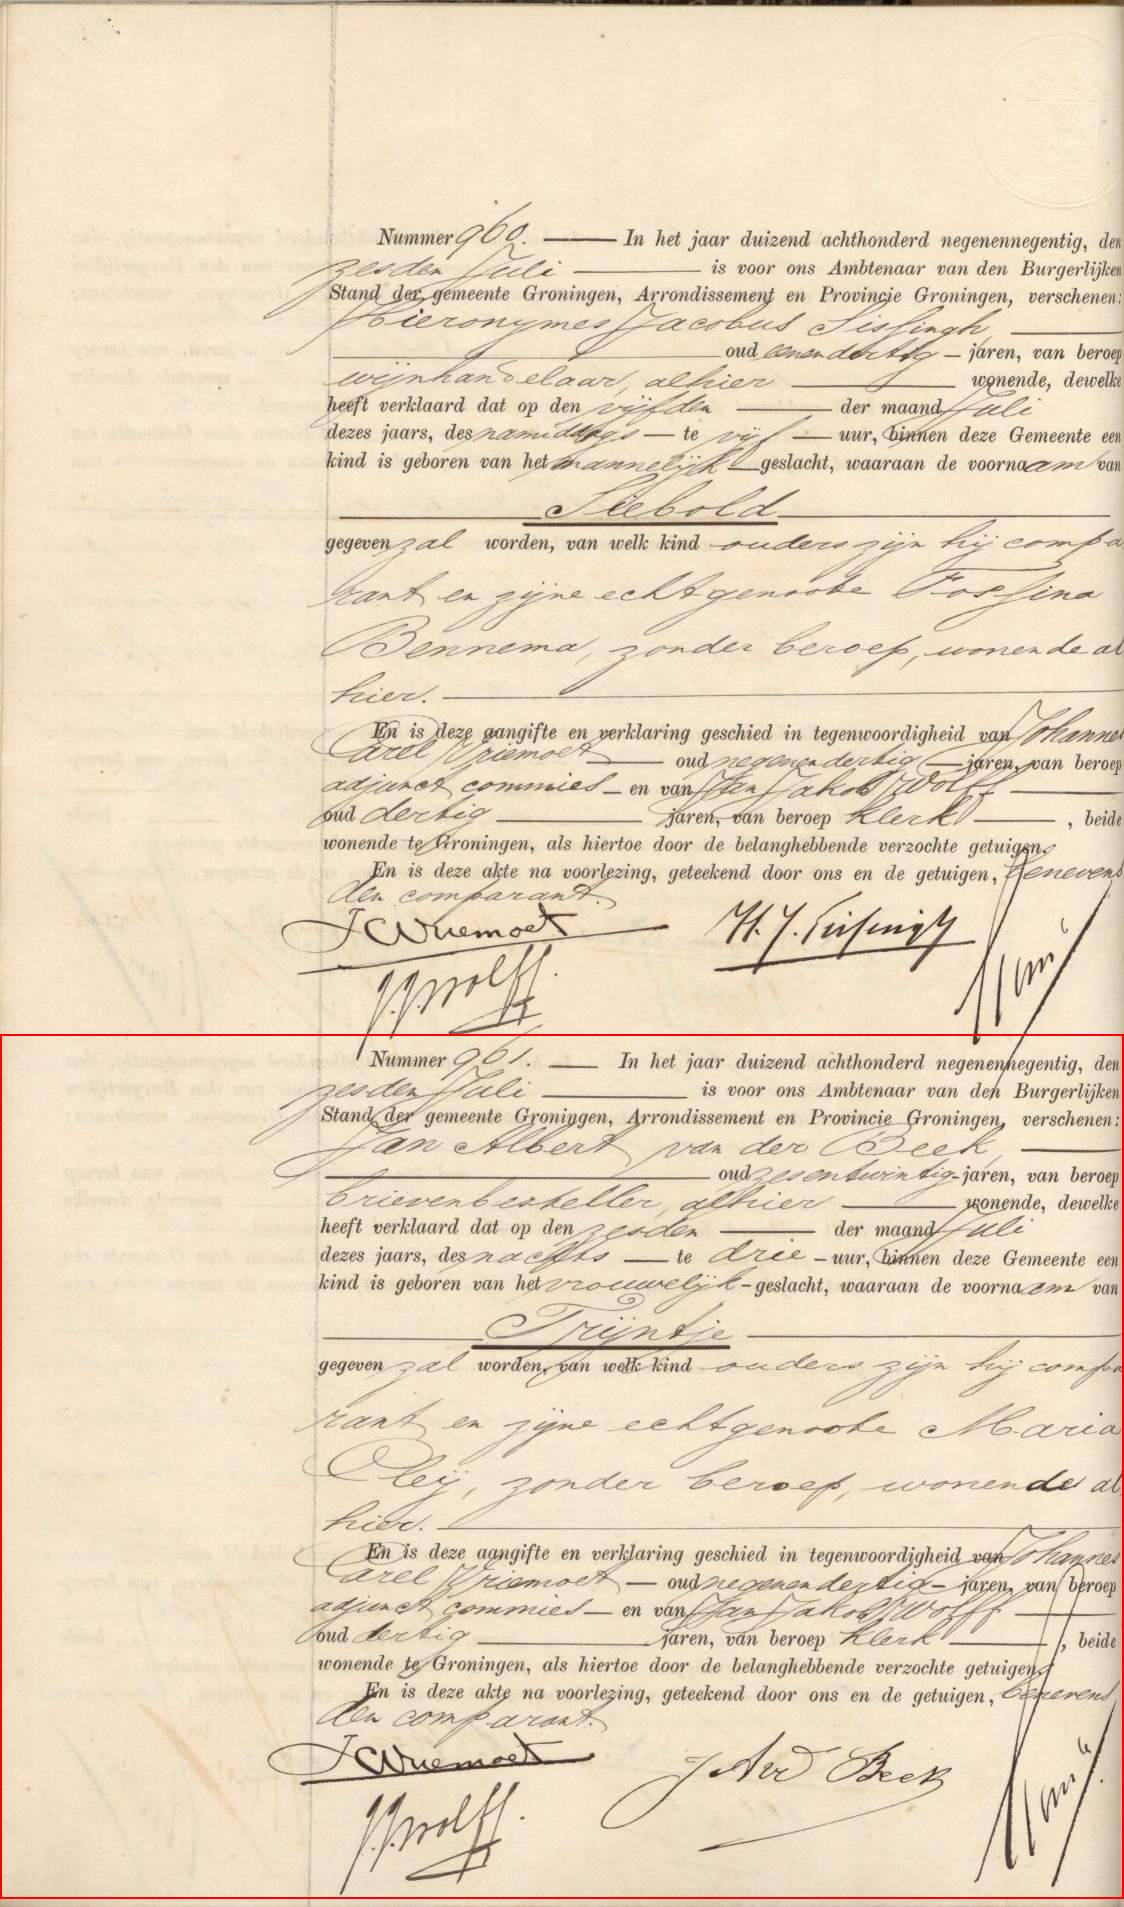 Nummer 960. In het jaar duizend achthonderd negenennegentig, den
zesden Juli is voor ons Ambtenaar van den Burgerlijken
Stand der gemeente Groningen, Arrondissement en Provincie Groningen, verschenen:
Hieronymes Jacobus Sissingh
oud eenendertig jaren, van beroep
wijnhandelaar, alhier wonende, dewelke
heeft verklaard dat op den vijfden der maand Juli
dezes jaars, des namiddags te vijf uur, binnen deze Gemeente een
kind is geboren van het mannelijk geslacht, waaraan de voornaam van
Siebold
gegeven zal worden, van welk kind ouders zijn hij compa
rant en zijne echtgenoote Fossina
Bennema, zonder beroep, wonende al
hier.
En is deze aangifte en verklaring geschied in tegenwoordigheid van Johannes
Carel Vriemoet oud negenendertig jaren, van beroep
adjunct commies en van Jan Jakob Wolff
oud dertig jaren, van beroep klerk, beide
wonende te Groningen, als hiertoe door de belanghebbende verzochte getuigen.
En is deze akte na voorlezing, geteekend door ons en de getuigen, benevens
den comparant.
JCVriemoet H. J. Sissingh
J.J. Wolff.
Nummer 961. In het jaar duizend achthonderd negenennegentig, den
zesden Juli is voor ons Ambtenaar van den Burgerlijken
Stand der gemeente Groningen, Arrondissement en Provincie Groningen, verschenen:
Jan Albert van der Beek
oud zesentwintig jaren, van beroep
brievenbesteller, alhier wonende, dewelke
heeft verklaard dat op den zesden der maand Juli
dezes jaars, des nachts te drie uur, binnen deze Gemeente een
kind is geboren van het vrouwelijk geslacht, waaraan de voornaam van
Trijntje
gegeven zal worden, van welk kind ouders zijn hij compa
rant en zijne echtgenoote Maria
Oleij, zonder beroep, wonende al
hier.
En is deze aangifte en verklaring geschied in tegenwoordigheid van Johannes
Carel Vriemoet oud negenendertig jaren, van beroep
adjunct commies en van Jan Jakob Wolff
oud dertig jaren, van beroep klerk, beide
wonende te Groningen, als hiertoe door de belanghebbende verzochte getuigen.
En is deze akte na voorlezing, geteekend door ons en de getuigen, benevens
den comparant.
JCVriemoet J A vd Beek
J.J. Wolff.